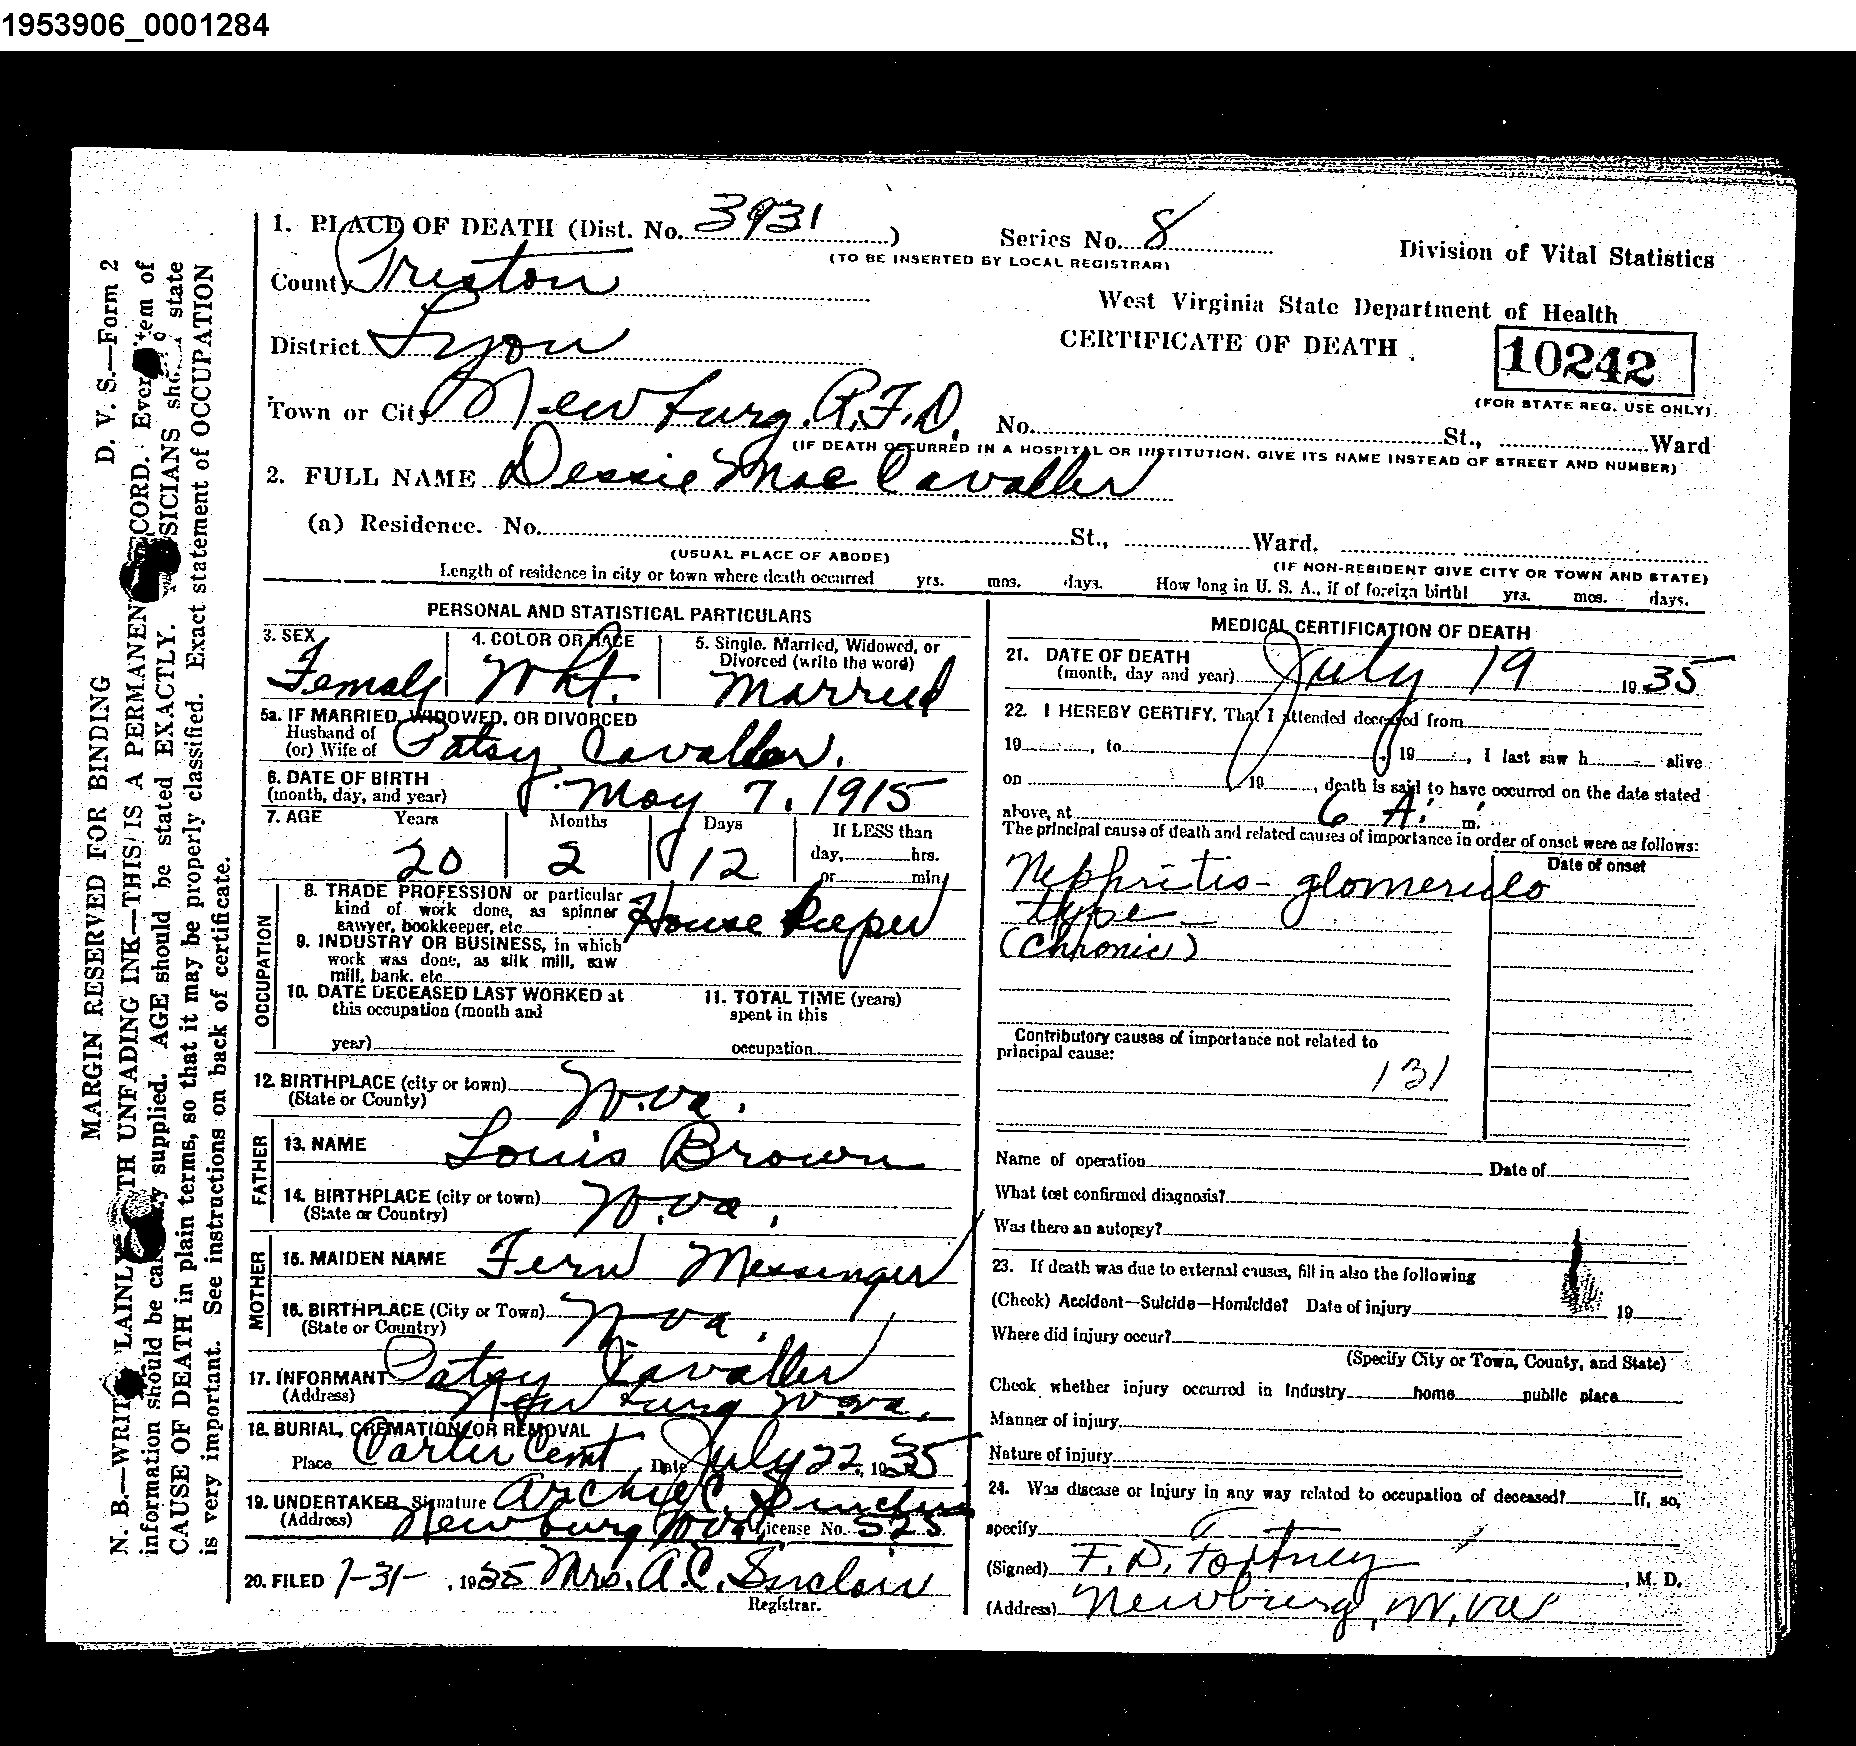 1953906_0001284
1. PLACE OF DEATH (Dist. No. 3931 ) Series No. 8 Division of Vital Statistics
(TO BE INSERTED BY LOCAL REGISTRAR)
County Preston
West Virginia State Department of Health
District Lyon CERTIFICATE OF DEATH
10242
(FOR STATE REG. USE ONLY)
Town or City Newburg. R.F.D. No. St., Ward
(IF DEATH OCCURRED IN A HOSPITAL OR INSTITUTION, GIVE ITS NAME INSTEAD OF STREET AND NUMBER)
2. FULL NAME Dessie Mae Cavaller
(a) Residence. No. St., Ward.
(USUAL PLACE OF ABODE) (IF NON-RESIDENT GIVE CITY OR TOWN AND STATE)
Length of residence in city or town where death occurred yrs. mos. days. How long in U. S. A., if of foreign birth! yrs. mos. days.
PERSONAL AND STATISTICAL PARTICULARS
3. SEX 4. COLOR OR RACE 5. Single. Married, Widowed, or
Divorced (write the word)
Female Wht. Married
5a. IF MARRIED, WIDOWED, OR DIVORCED
Husband of
(or) Wife of Patsy Cavaller.
6. DATE OF BIRTH
(month, day, and year) May 7. 1915
7. AGE Years Months Days If LESS than
20 2 12 day, hrs.
or min.
OCCUPATION
8. TRADE PROFESSION or particular
kind of work done, as spinner
sawyer, bookkeeper, etc. House Keeper
9. INDUSTRY OR BUSINESS, in which
work was done, as silk mill, saw
mill, bank. etc.
10. DATE DECEASED LAST WORKED at 11. TOTAL TIME (years)
this occupation (month and spent in this
year) occupation
12. BIRTHPLACE (city or town) W.va.
(State or County)
FATHER
13. NAME Louis Brown
14. BIRTHPLACE (city or town) W.va.
(State or Country)
MOTHER
15. MAIDEN NAME Fern Messenger
16. BIRTHPLACE (City or Town) W.va.
(State or Country)
17. INFORMANT Patsy Cavaller
(Address) Newburg W.va.
18. BURIAL, CREMATION OR REMOVAL
Place Carter Cemt Date July 22, 1935
19. UNDERTAKER Signature Archie C. Sinclair
(Address) Newburg W.va. License No. 525
20. FILED 7-31-, 1935 Mrs. A.C. Sinclair
Registrar.
MEDICAL CERTIFICATION OF DEATH
21. DATE OF DEATH
(month, day and year) July 19 1935
22. I HEREBY CERTIFY, That I attended deceased from
19 , to , 19 , I last saw h alive
on 19 , death is said to have occurred on the date stated
above, at 6 A. m.
The principal cause of death and related causes of importance in order of onset were as follows:
Date of onset
Nephritis - glomerulo
type -
(Chronic)
Contributory causes of importance not related to
principal cause:
131
Name of operation Date of
What test confirmed diagnosis?
Was there an autopsy?
23. If death was due to external causes, fill in also the following
(Check) Accident—Suicide—Homicide? Date of injury 19
Where did injury occur?
(Specify City or Town, County, and State)
Check whether injury occurred in Industry home public place
Manner of injury
Nature of injury
24. Was disease or injury in any way related to occupation of deceased? If, so,
specify
(Signed) F. D. Fortney , M. D.
(Address) Newburg, W.va
D. V. S.—Form 2
MARGIN RESERVED FOR BINDING
N. B.—WRITE PLAINLY WITH UNFADING INK—THIS IS A PERMANENT RECORD. Every item of
information should be carefully supplied. AGE should be stated EXACTLY. PHYSICIANS should state
CAUSE OF DEATH in plain terms, so that it may be properly classified. Exact statement of OCCUPATION
is very important. See instructions on back of certificate.